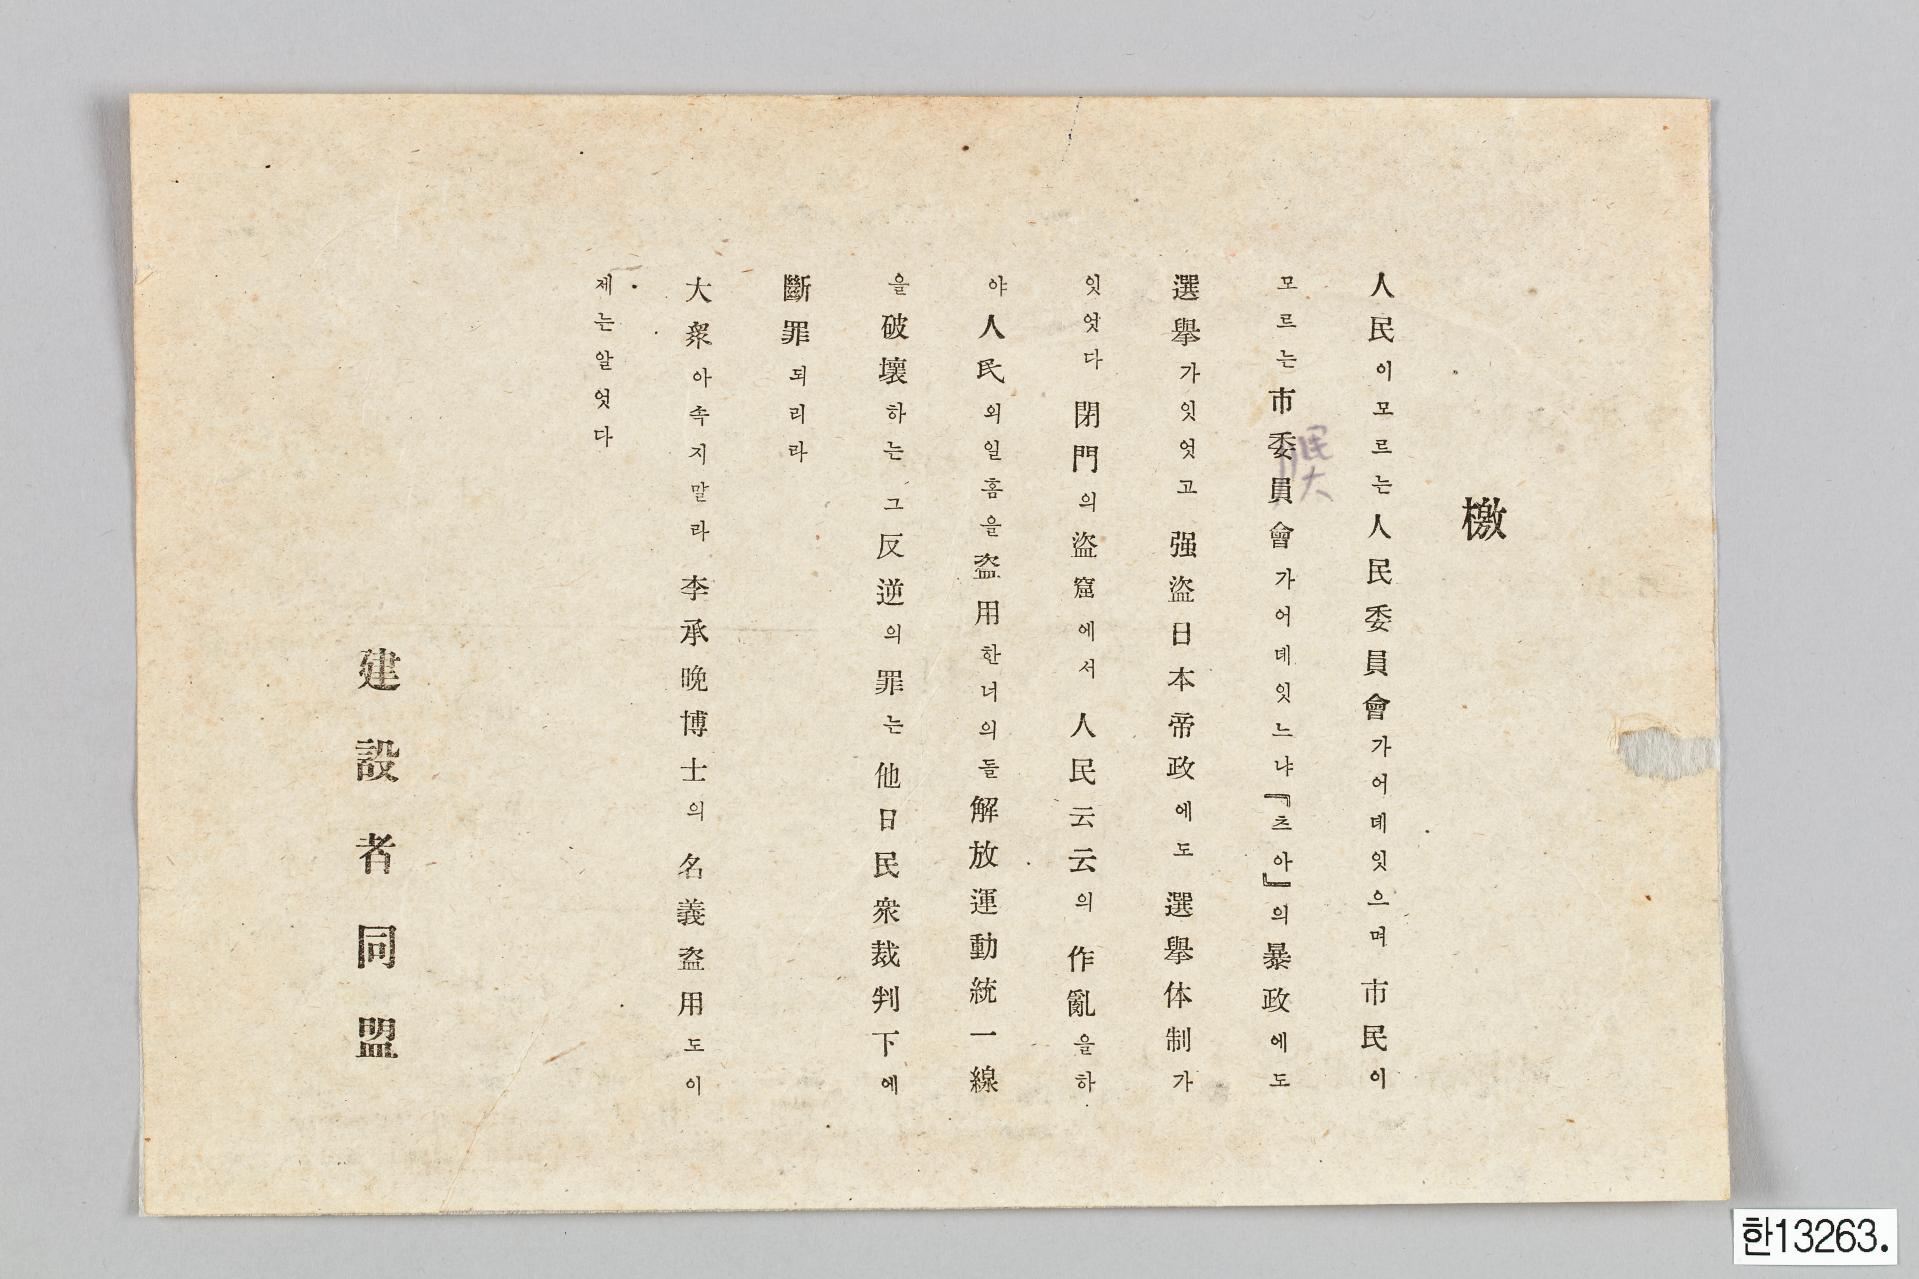 檄
人民이모르는人民委員會가어데잇으며 市民이
모르는市委員會가어데잇느냐『츠아』의暴政에도
選擧가잇엇고 强盜日本帝政에도 選擧体制가
잇엇다 閉門의盜窟에서 人民云云의 作亂을하
야人民의일홈을盜用한너의들解放運動統一線
을破壞하는 그反逆의 罪는他日民衆裁判下에
斷罪되리라
大衆아속지말라 李承晩博士의 名義盜用도이
제는알엇다
建設者同盟
한13263.